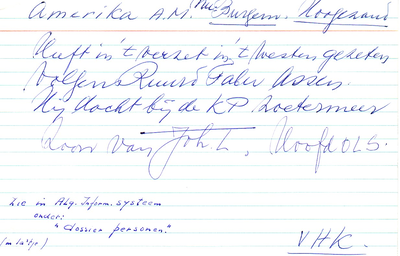 Amerika A.M. nu: Burgem. Hoogezand
Heeft in 't verzet in 't Westen gezeten
volgens Ruurd Faber Assen.
Hij dacht bij de KP Zoetermeer
Zoon van Joh. L, Hoofd OLS.
Zie in Alg. Inform. systeem
onder:
"dossier personen."
(m la'tje)
VHK.